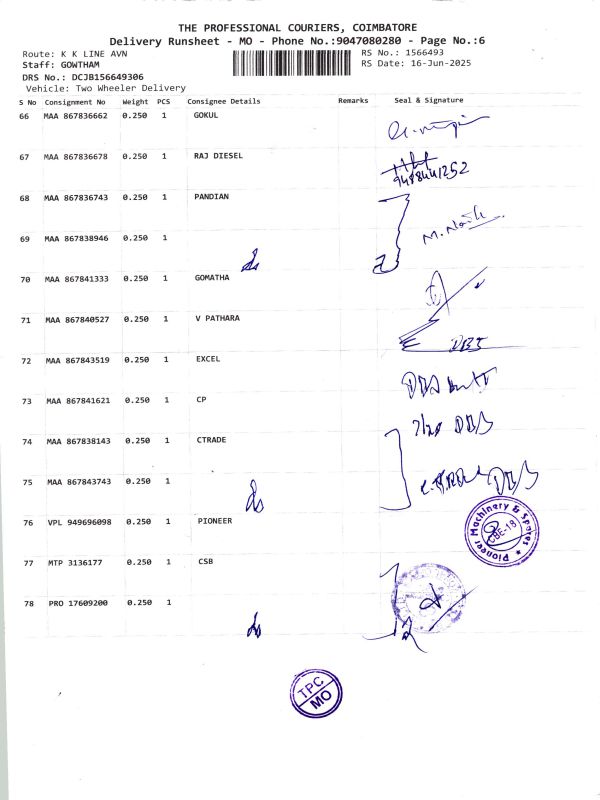 THE PROFESSIONAL COURIERS, COIMBATORE
Delivery Runsheet - MO - Phone No.:9047080280 - Page No.:6
Route: K K LINE AVN
RS No.: 1566493
Staff: GOWTHAM
RS Date: 16-Jun-2025
DRS No.: DCJB156649306
Vehicle: Two Wheeler Delivery
S No Consignment No Weight PCS Consignee Details Remarks Seal & Signature
66 MAA 867836662 0.250 1 GOKUL
67 MAA 867836678 0.250 1 RAJ DIESEL
68 MAA 867836743 0.250 1 PANDIAN
69 MAA 867838946 0.250 1
70 MAA 867841333 0.250 1 GOMATHA
71 MAA 867840527 0.250 1 V PATHARA
72 MAA 867843519 0.250 1 EXCEL
73 MAA 867841621 0.250 1 CP
74 MAA 867838143 0.250 1 CTRADE
75 MAA 867843743 0.250 1
76 VPL 949696098 0.250 1 PIONEER
Pioneer Machinery & Spares
CBE-18
77 MTP 3136177 0.250 1 CSB
78 PRO 17609200 0.250 1
TPC
MO